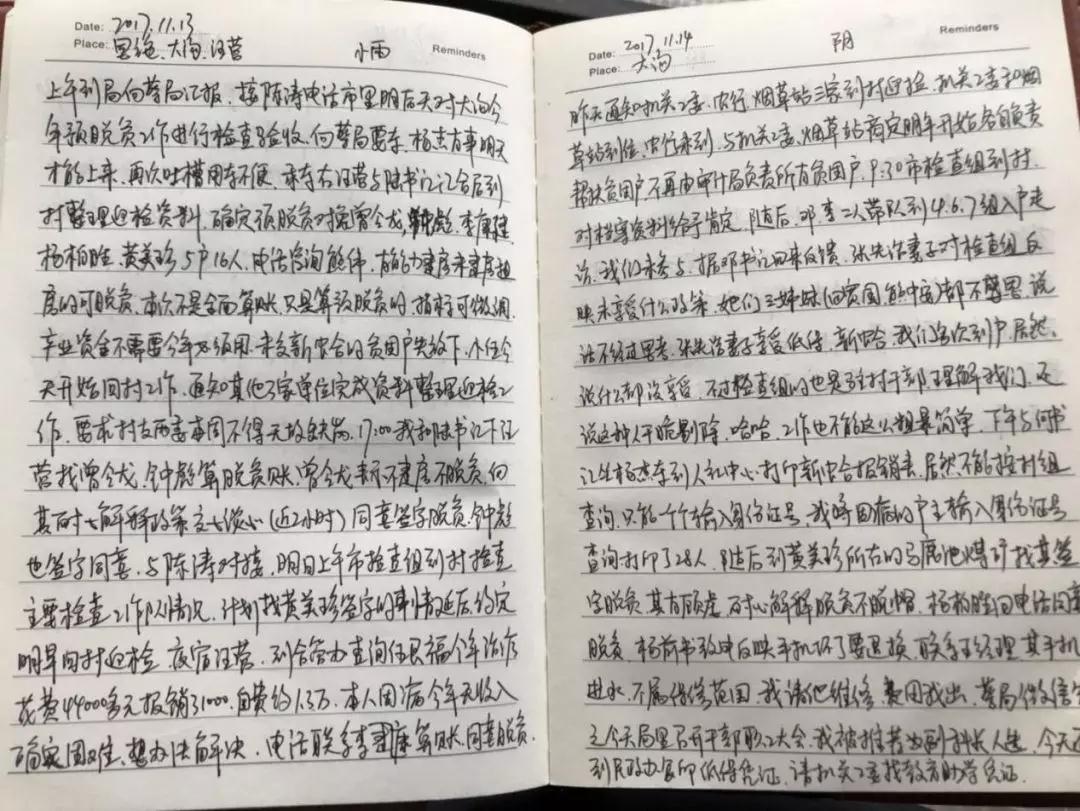 Date: 2017.11.13
Place: 里绝、大沟、汪营 小雨 Reminders
上午到局向蔡局汇报。接陈涛电话市里明后天对大沟今
年预脱贫工作进行检查验收。向蔡局要车,杨志有事明天
才能上来,再次吐槽用车不便。乘车在汪营与陆书记汇合后到
村整理迎检资料,确定预脱贫对象曾令龙、钟彪、李康健、
杨柏胜、黄美珍5户16人,电话咨询熊伟,有能力建房未建房超
度的可脱贫。本次不是全面算账,只是算预脱贫的,指标可微调
产业资金不需要今年必须用,未交新农合的贫困户先放下,小任今
天开始回村工作。通知其他3家单位完成资料整理迎检工
作。要求村支两委春同不得无故缺岗。17:00我和陆书记下汪
营找曾令龙、钟彪算脱贫账,曾令龙表示不建房不脱贫,向
其面对七解释政策交七谈心(近2小时)同意签字脱贫,钟彪
也签字同意。与陈涛对接,明日上午市检查组到村检查
主要检查工作队情况,计划找黄美珍签字的事情延后,约定
明早回村迎检 夜宿汪营。到合管办查询任民福今年治疗
花费44000多元报销31000,自费约1.3万,本人因病今年无收入
确实困难,想办法解决。电话联系李康算账,同意脱贫。
Date: 2017.11.14 Reminders
Place: 大沟 阴
昨天通知机关工委、农行、烟草站三家到村迎检,机关工委和烟
草站到位,农行未到。与机关工委、烟草站商定明年开始各自负责
帮扶贫困户,不再由审计局负责所有贫困户。9:30市检查组到村,
对档案资料给予肯定,随后,邓、李二人带队到4.6.7组入户走
访,我们未参与。据邓书记回来反馈,张先浩妻子对检查组反
映未享受什么政策,她们三姊妹都不聪明,说
话不经过思考。张先浩妻子享受低保、新农合,我们当次到户居然
说什么都没享受。不过检查组的也是驻村干部理解我们,还
说这种人干脆剔除,哈哈,工作也不能这么粗暴简单。下午与何书
记坐杨杰车到人社中心打印新农合报销表,居然不能按村组
查询,只能一个个输入身份证号,我将因病的户主输入身份证号
查询打印了28人。随后到黄美珍所在的马鹿池煤矿找其签
字脱贫,其有顾虑,耐心解释脱贫不脱帽。杨柏胜回电话同意
脱贫。杨前书致电反映手机坏了要退换,联系王经理,其手机
进水,不属保修范围,我请他维修,费用我出。蔡局微信告
之今天局里召开干部职工大会,我被推荐为副科长人选,今天还
到民政办复印低保凭证,请机关工委找教育助学凭证。